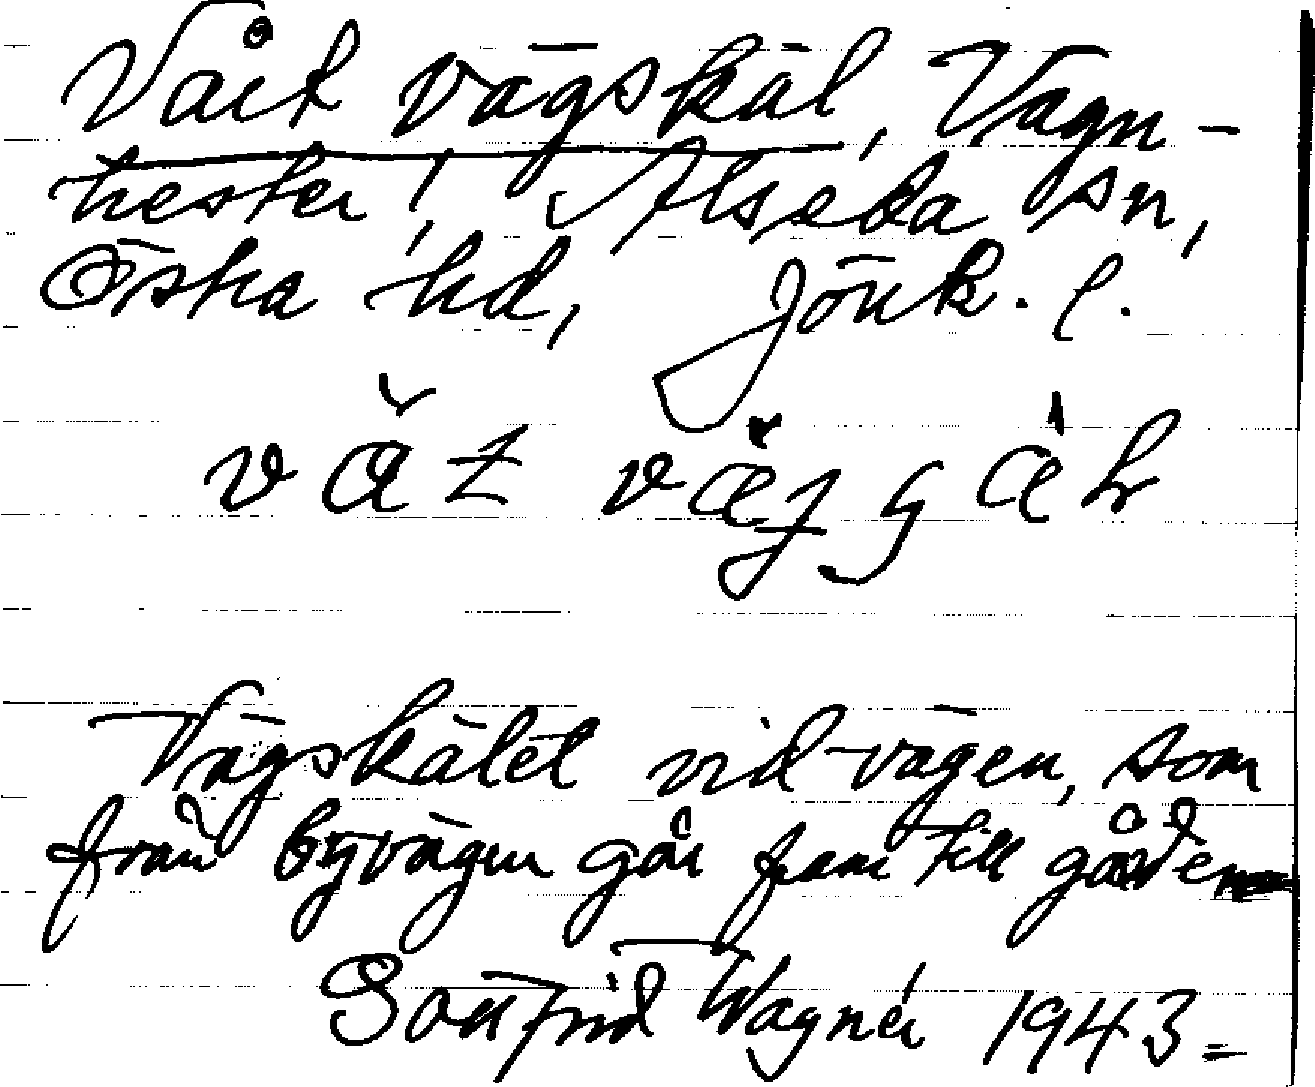 Vårt vägskäl, Vagn-
hester, Alseda sn,
Östra hd, Jönk. l.
Vägskälet vid vägen, som
från byvägen går fram till gården
Wagnér 1943